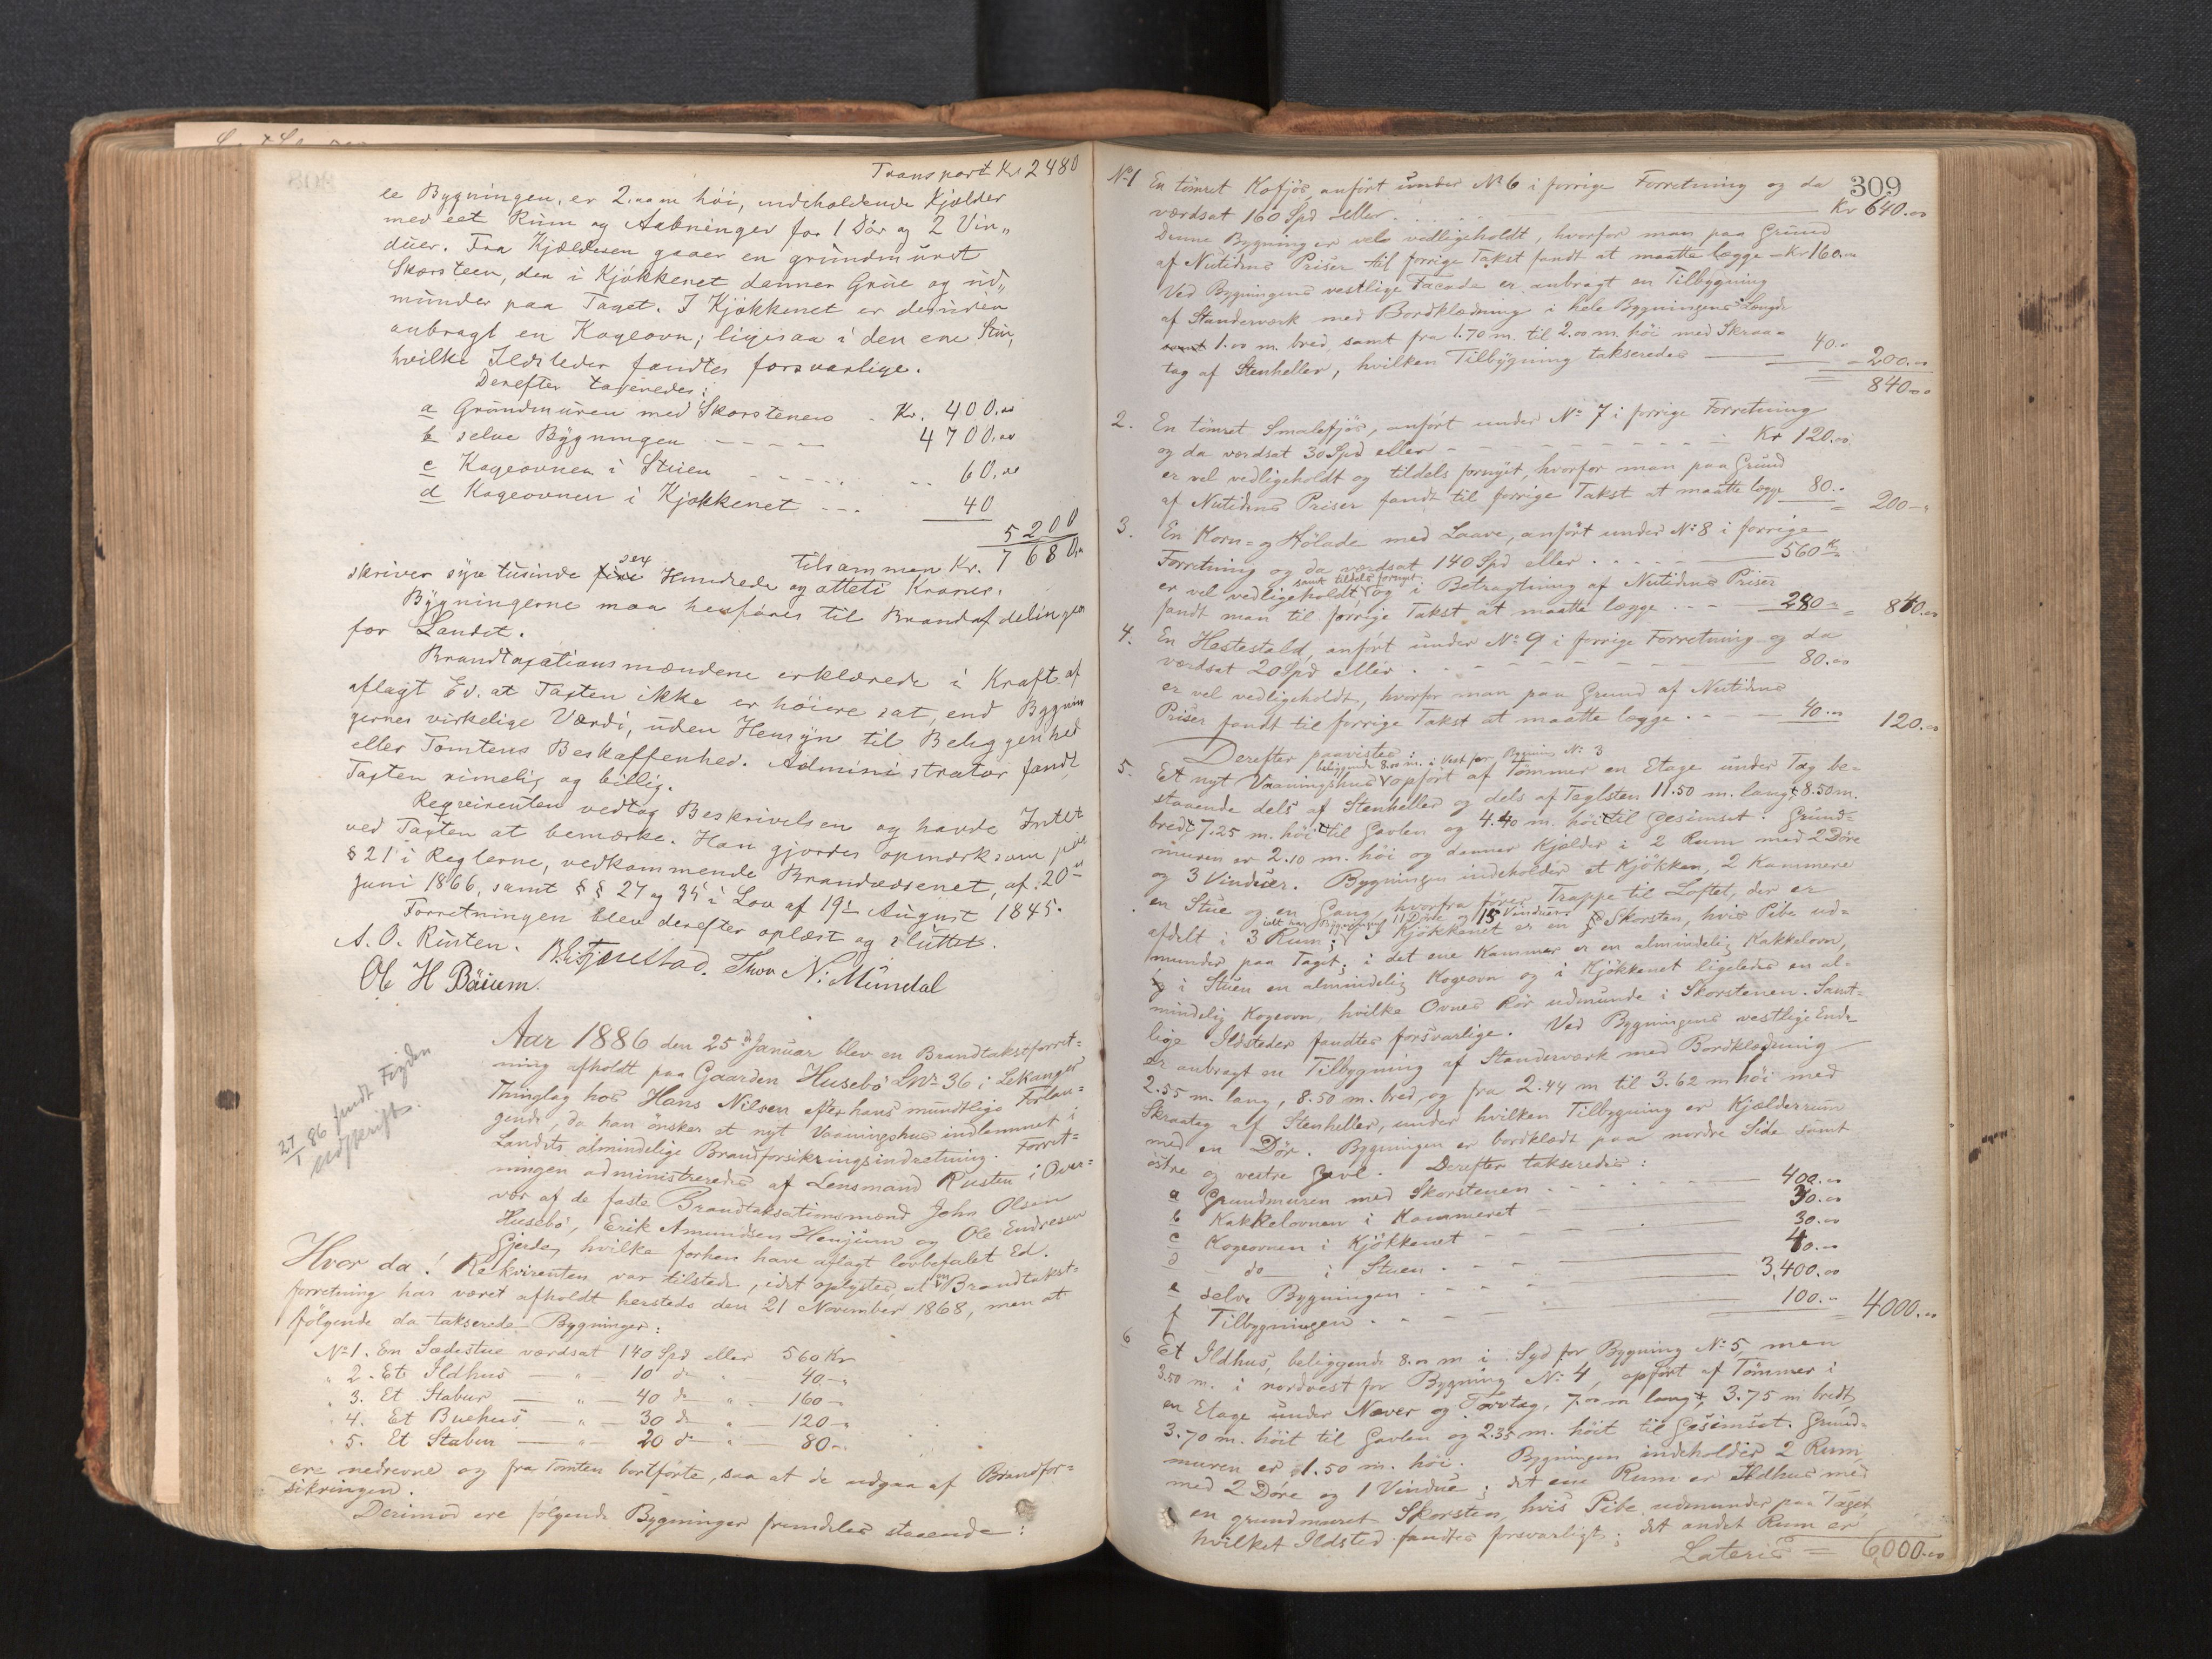 Transport Kr 2480
le Bygningen, er 2.00 m høi, indeholdende Kjælder
med eet Rum og Aabninger for 1 Dör og 2 Vin„
duer. Fra Kjælderen gaaer en grundmuret
Skorsteen, der i Kjökkenet danner Grue og ud„
munder paa Taget. I Kjøkkenet er desuden
anbragt en Kogeovn; ligesaa i den ene Stue,
hvilke Ildsteder fandtes forsvarlige.
Derefter taxeredes:
a Grundmuren med Skorstenen - Kr. 400.00
b selve Bygningen - - - - 4700.00
c Kogeovnen i Stuen - - - - - 60.00
d Kogeovnen i Kjøkkenet - - - 40
5200
Tilsammen Kr. 7680.00
sex
skriver syv tusinde fire Hundrede og otteti Kroner.
Bygningerne maa henføres til Brandafdelingen
for Landet.
Brandtaxationsmændene erklærede i Kraft af
aflagt Ed. at Taxten ikke er höiere sat, end Bygnin
gernes virkelige Værdi, uden Hensyn til Beliggenhed
eller Tomtens Beskaffenhed. Administrator fandt
Taxten rimelig og billig.
Reqvirenten vedtog Beskrivelsen og havde Intet
ved Taxten at bemærke. Han gjordes opmærksom paa
§ 21 i Reglerne, vedkommende Brandvæsenet, af 20de
Juni 1866, samt § § 27 og 35 i Lov af 19de August 1845.
Forretningen blev derefter oplæst og sluttet.
A. O. Rusten. Tjenestad. Thor N. Mundal
Ole H Böium.
21/1 86 sendt Fogden
udskrift.
Aar 1886 den 25d Januar blev en Brandtakstforret=
ning afholdt paa Gaarden Husebö LNr 36 i Lekanger
Thinglag hos Hans Nilsen efter hans mundtlige Forlan=
gende, da han önsker et nyt Vaaningshus indlemmet i
Landets almindelige Brandforsikringsindretning. Forret=
ningen administreredes af Lensmand Rusten i Over=
vær af de faste Brandtaksationsmænd John Olsen
Husebö, Erik Amundsen Henjum og Ole Endresen
Gjerde, hvilke forhen have aflagt lovbefalet Ed.
Hvor da! Rekvirenten var tilstede, idet oplystes, at en Brandtakst=
forretning har været afholdt hersteds den 21 November 1868, men at
fölgende da takserede Bygninger:
No 1. En Sædestue værdsat 140 Spd eller 560 Kr
„ 2. Et Ildhus — „ — 10 do „ 40.—„
„ 3. Et Stabur — „ — 40 do „ 160 —
„ 4. Et Buehus — „ — 30 do „ 120 —„
„ 5. Et Stabur — „ — 20 do „ 80 —„
ere nedrevne og fra Tomten bortförte, saa at de udgaa af Brandfor=
sikringen.
Derimod ere fölgende Bygninger fremdeles staaende:
309
No 1 En tömret Kofjös, anfört under No 6 i forrige Forretning og da
værdsat 160 Spd eller . . . Kr 640.00
Denne Bygning er vel vedligeholdt, hvorfor man paa Grund
af Nutidens Priser til forrige Takst fandt at maatte lægge - Kr 160.00
Ved Bygningens vestlige Facade er anbragt en Tilbygning
af Standerværk med Bordklædning i hele Bygningens Længde
samt 1.00 m. bred samt fra 1.70 m. til 2.00 m. höi med Skraa=
tag af Stenheller, hvilken Tilbygning takseredes — 40.- = 200.00
840.00
2. En tömret Smalefjös, anfört under No 7 i forrige Forretning
og da værdsat 30 Spd eller - - - Kr 120.00
er vel vedligeholdt og tildels fornyet, hvorfor man paa Grund
af Nutidens Priser fandt til forrige Takst at maatte lægge 80.- = 200 -„
3. En Korn- og Hölade med Laave, anfört under No 8 i forrige
Forretning og da værdsat 140 Spd eller . . . . 560 Kr
samt tildels fornyet
er vel vedligeholdt og i Betragtning af Nutidens Priser
fandt man til forrige Takst at maatte lægge . - - 280 - = 840.00
4. En Hestestald, anfört under No 9 i forrige Forretning og da
værdsat 20 Spd eller . - - - - - 80.00
er vel vedligeholdt, hvorfor man paa Grund af Nutidens
Priser fandt til forrige Takst at maatte lægge . - - 40.00 120.00
Derefter paavistes:
beliggende 8.00 m. i Vest for Bygning No 3
5. Et nyt Vaaningshus opfört af Tömmer en Etage under Tag be=
staaende dels af Stenheller og dels af Teglsten 11.50 m. langt, 8.50 m.
bredt, 7.25 m. höit til Gavlen og 4.40 m. höit til Gesimset. Grund=
muren er 2.10 m. höi og danner Kjælder i 2 Rum med 2 Döre
og 3 Vinduer. Bygningen indeholder et Kjökken, 2 Kammere
en Stue og en Gang, hvorfra förer Trappe til Loftet, der er
idt har Bygningen 11 Döre og 15 Vinduer.
afdelt i 3 Rum; I Kjökkenet er en Skorsten, hvis Pibe ud=
munder paa Taget; i det ene Kammer er en almindelig Kakkelovn,
i Stuen en almindelig Kogeovn og i Kjökkenet ligeledes en al=
mindelig Kogeovn, hvilke Ovnes Rör udmunde i Skorstenen. Samt=
lige Ildsteder fandtes forsvarlige. Ved Bygningens vestlige Ende
er anbragt en Tilbygning af Standerværk med Bordklædning
2.55 m. lang, 8.50 m. bred, og fra 2.44 m til 3.62 m höi med
Skraatag af Stenheller, under hvilken Tilbygning er Kjælderrum
med en Dör. Bygningen er bordklædt paa nordre Side samt
östre og vestre Gavl. Derefter takseredes:
a Grundmuren med Skorstenen - - - 400.00
b Kakkelovnen i Kammeret - - - 30.00
c Kogeovnen i Kjökkenet - - - 30.00
d do i Stuen . - - 40.-
e selve Bygningen . - - 3,400.00
f Tilbygningen . - - 100.- = 4000.00
6 Et Ildhus, beliggende 8.00 m i Syd for Bygning No 5, men
3.50 m. i nordvest for Bygning No 4, opfört af Tömmer i
en Etage under Næver og Torvtag, 7.00 m langt, 3.75 m bredt,
3.70 m. höit til Gavlen og 2.35 m. höit til Gesimset. Grund=
muren er 1.50 m. höi. Bygningen indeholder 2 Rum,
med 2 Döre og 1 Vindue; det ene Rum er Ildhus med
en grundmuret Skorsten, hvis Pibe udmunder paa Taget,
hvilket Ildsted fandtes forsvarligt; det andet Rum er
Lateris = 6,000.00